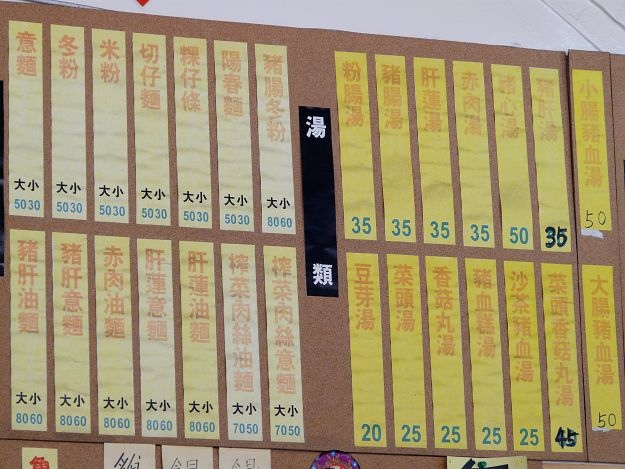 豬腸冬粉 大小 8060
陽春麵 大小 5030
粿仔條 大小 5030
切仔麵 大小 5030
米粉 大小 5030
冬粉 大小 5030
意麵 大小 5030
榨菜肉絲意麵 大小 7050
榨菜肉絲油麵 大小 7050
肝蓮油麵 大小 8060
肝蓮意麵 大小 8060
赤肉油麵 大小 8060
豬肝意麵 大小 8060
豬肝油麵 大小 8060
湯類
小腸豬血湯 50
豬肝湯 35
豬心湯 50
赤肉湯 35
肝蓮湯 35
豬腸湯 35
粉腸湯 35
大腸豬血湯 50
菜頭香菇丸湯 45
沙茶豬血湯 25
豬血糕湯 25
香菇丸湯 25
菜頭湯 25
豆芽湯 20